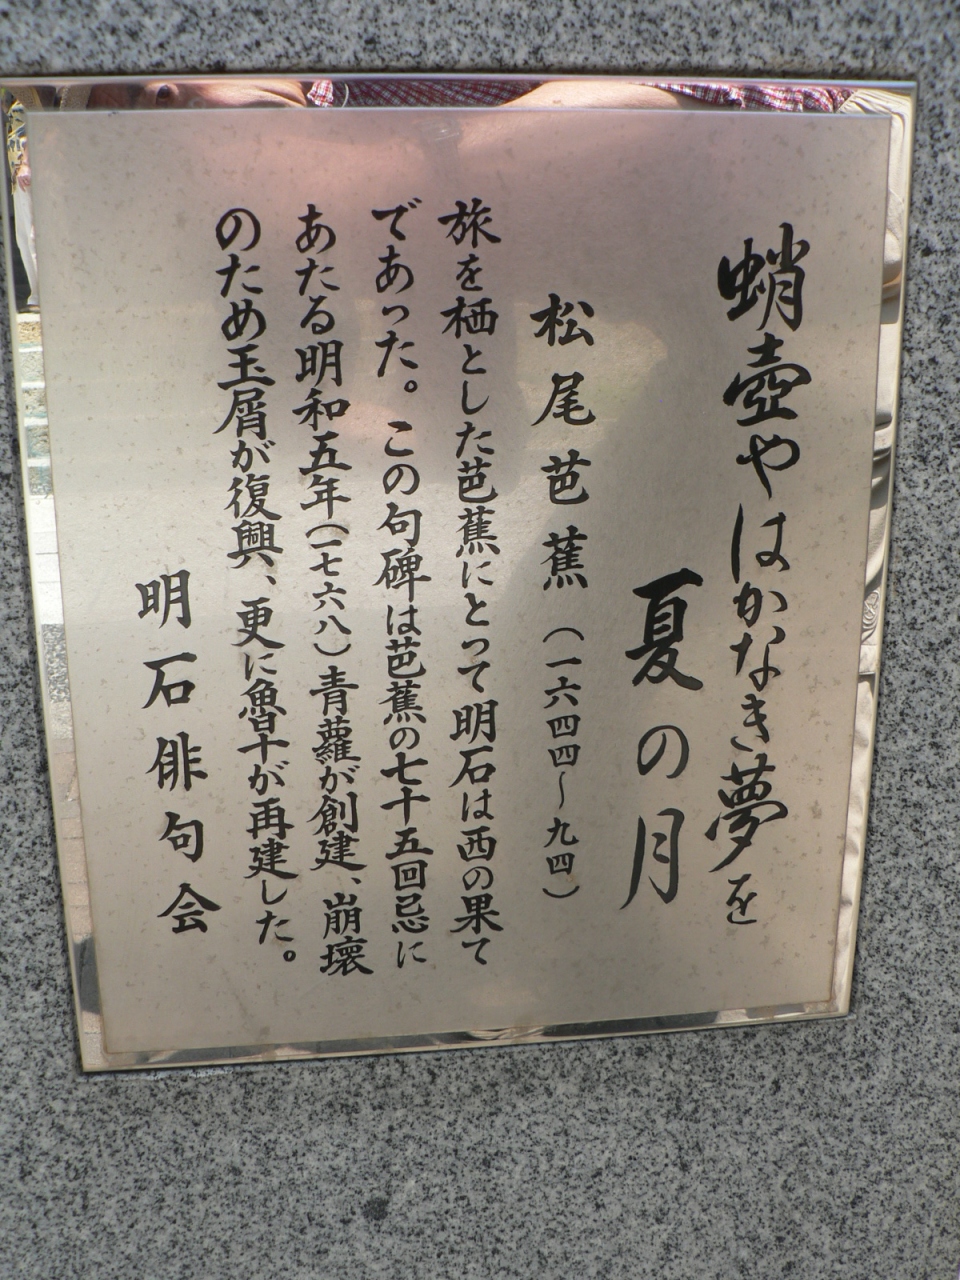 蛸壺やはかなき夢を
夏の月
松尾芭蕉（一六四四～九四）
旅を栖とした芭蕉にとって明石は西の果て
であった。この句碑は芭蕉の七十五回忌に
あたる明和五年（一七六八）青蘿が創建、崩壊
のため玉屑が復興、更に魯十が再建した。
明石俳句会